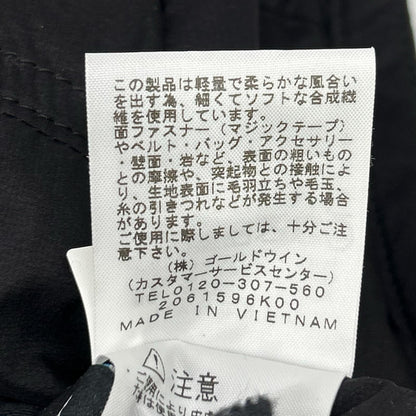 この製品は軽量で柔らかな風合い
を出す為、細くてソフトな合成繊
維を使用しています。
面ファスナー（マジックテープ）
やベルト・バッグ・アクセサリー
・壁面・岩など、表面の粗いもの
との摩擦や、突起物との接触によ
り、生地表面に毛羽立ちや毛玉、
糸の引きつれなどが発生する場合
があります。
使用に際しましては、十分ご注
意下さい。
（株）ゴールドウイン
（カスタマーサービスセンター）
TEL0120-307-560
2061596K00
MADE IN VIETNAM
注意